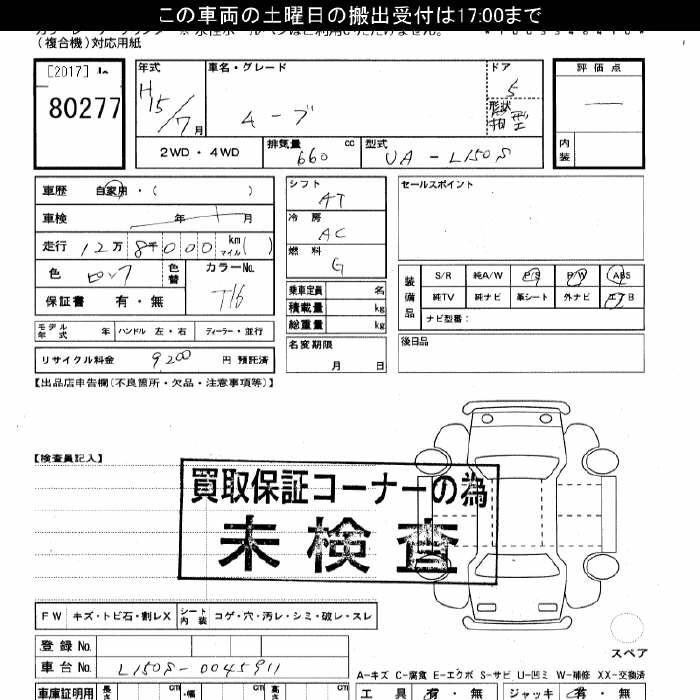 この車両の土曜日の搬出受付は17:00まで
(複合機)対応用紙
[2017]
80277
年式 H15/7月
車名・グレード ムーブ
ドア 5
形状 箱型
評価点 —
内装
2WD・4WD
排気量 660 cc
型式 UA-L150S
車歴 自家用・( )
車検 年 月
走行 12万8千000 km マイル ( )
色 色替
カラーNo. T16
保証書 有・無
シフト AT
冷房 AC
燃料 G
乗車定員 名
積載量 kg
総重量 kg
セールスポイント
装備品
S/R 純A/W P/S P/W ABS
純TV 純ナビ 革シート 外ナビ エアB
ナビ型番:
モデル年式 年 ハンドル 左・右 ディーラー・並行
名変期限
月 日
後日品
リサイクル料金 9200 円 預託済
【出品店申告欄(不良箇所・欠品・注意事項等)】
【検査員記入】
買取保証コーナーの為
未検査
FW キズ・トビ石・割レX シート内装 コゲ・穴・汚レ・シミ・破レ・スレ
スペア
登録 No.
車台 No. L150S-0045911
A-キズ C-腐食 E-エクボ S-サビ U-凹ミ W-補修 XX-交換済
車庫証明用 長さ cm ・幅 cm 高さ cm
工具 有・無 ジャッキ 有・無